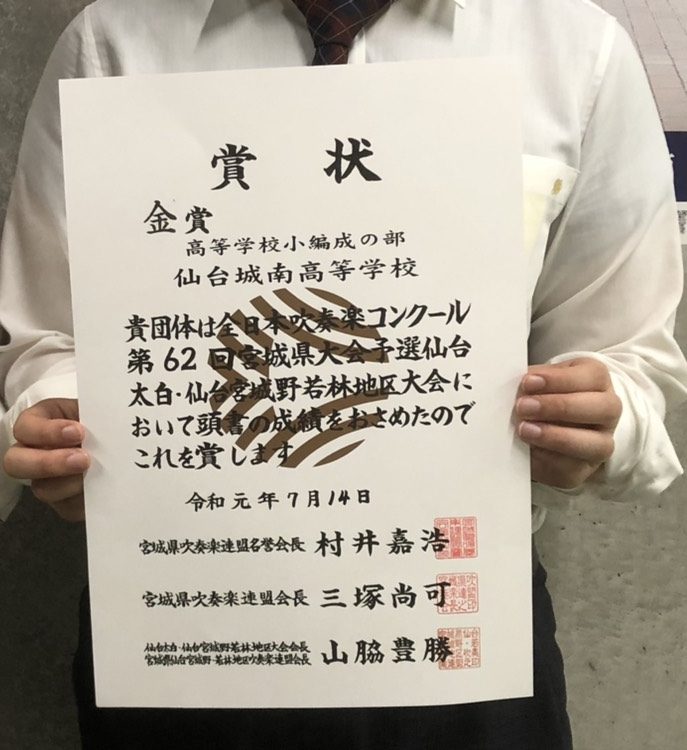 賞状
金賞
高等学校小編成の部
仙台城南高等学校
貴団体は全日本吹奏楽コンクール
第62回宮城県大会予選仙台
太白・仙台宮城野若林地区大会に
おいて頭書の成績をおさめたので
これを賞します
令和元年7月14日
宮城県吹奏楽連盟名誉会長 村井嘉浩
宮城県吹奏楽連盟会長 三塚尚可
仙台太白・仙台宮城野若林地区大会会長
宮城県仙台宮城野・若林地区吹奏楽連盟会長 山脇豊勝